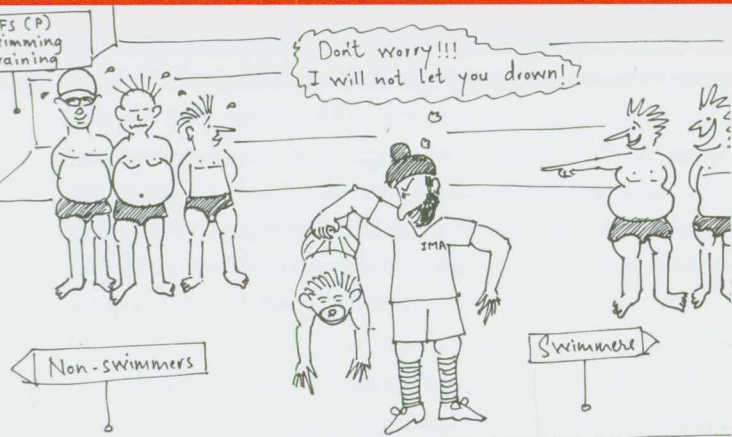 FS (P)
imming
raining
Don't worry!!!
I will not let you drown!
IMA
Non-swimmers
Swimmers